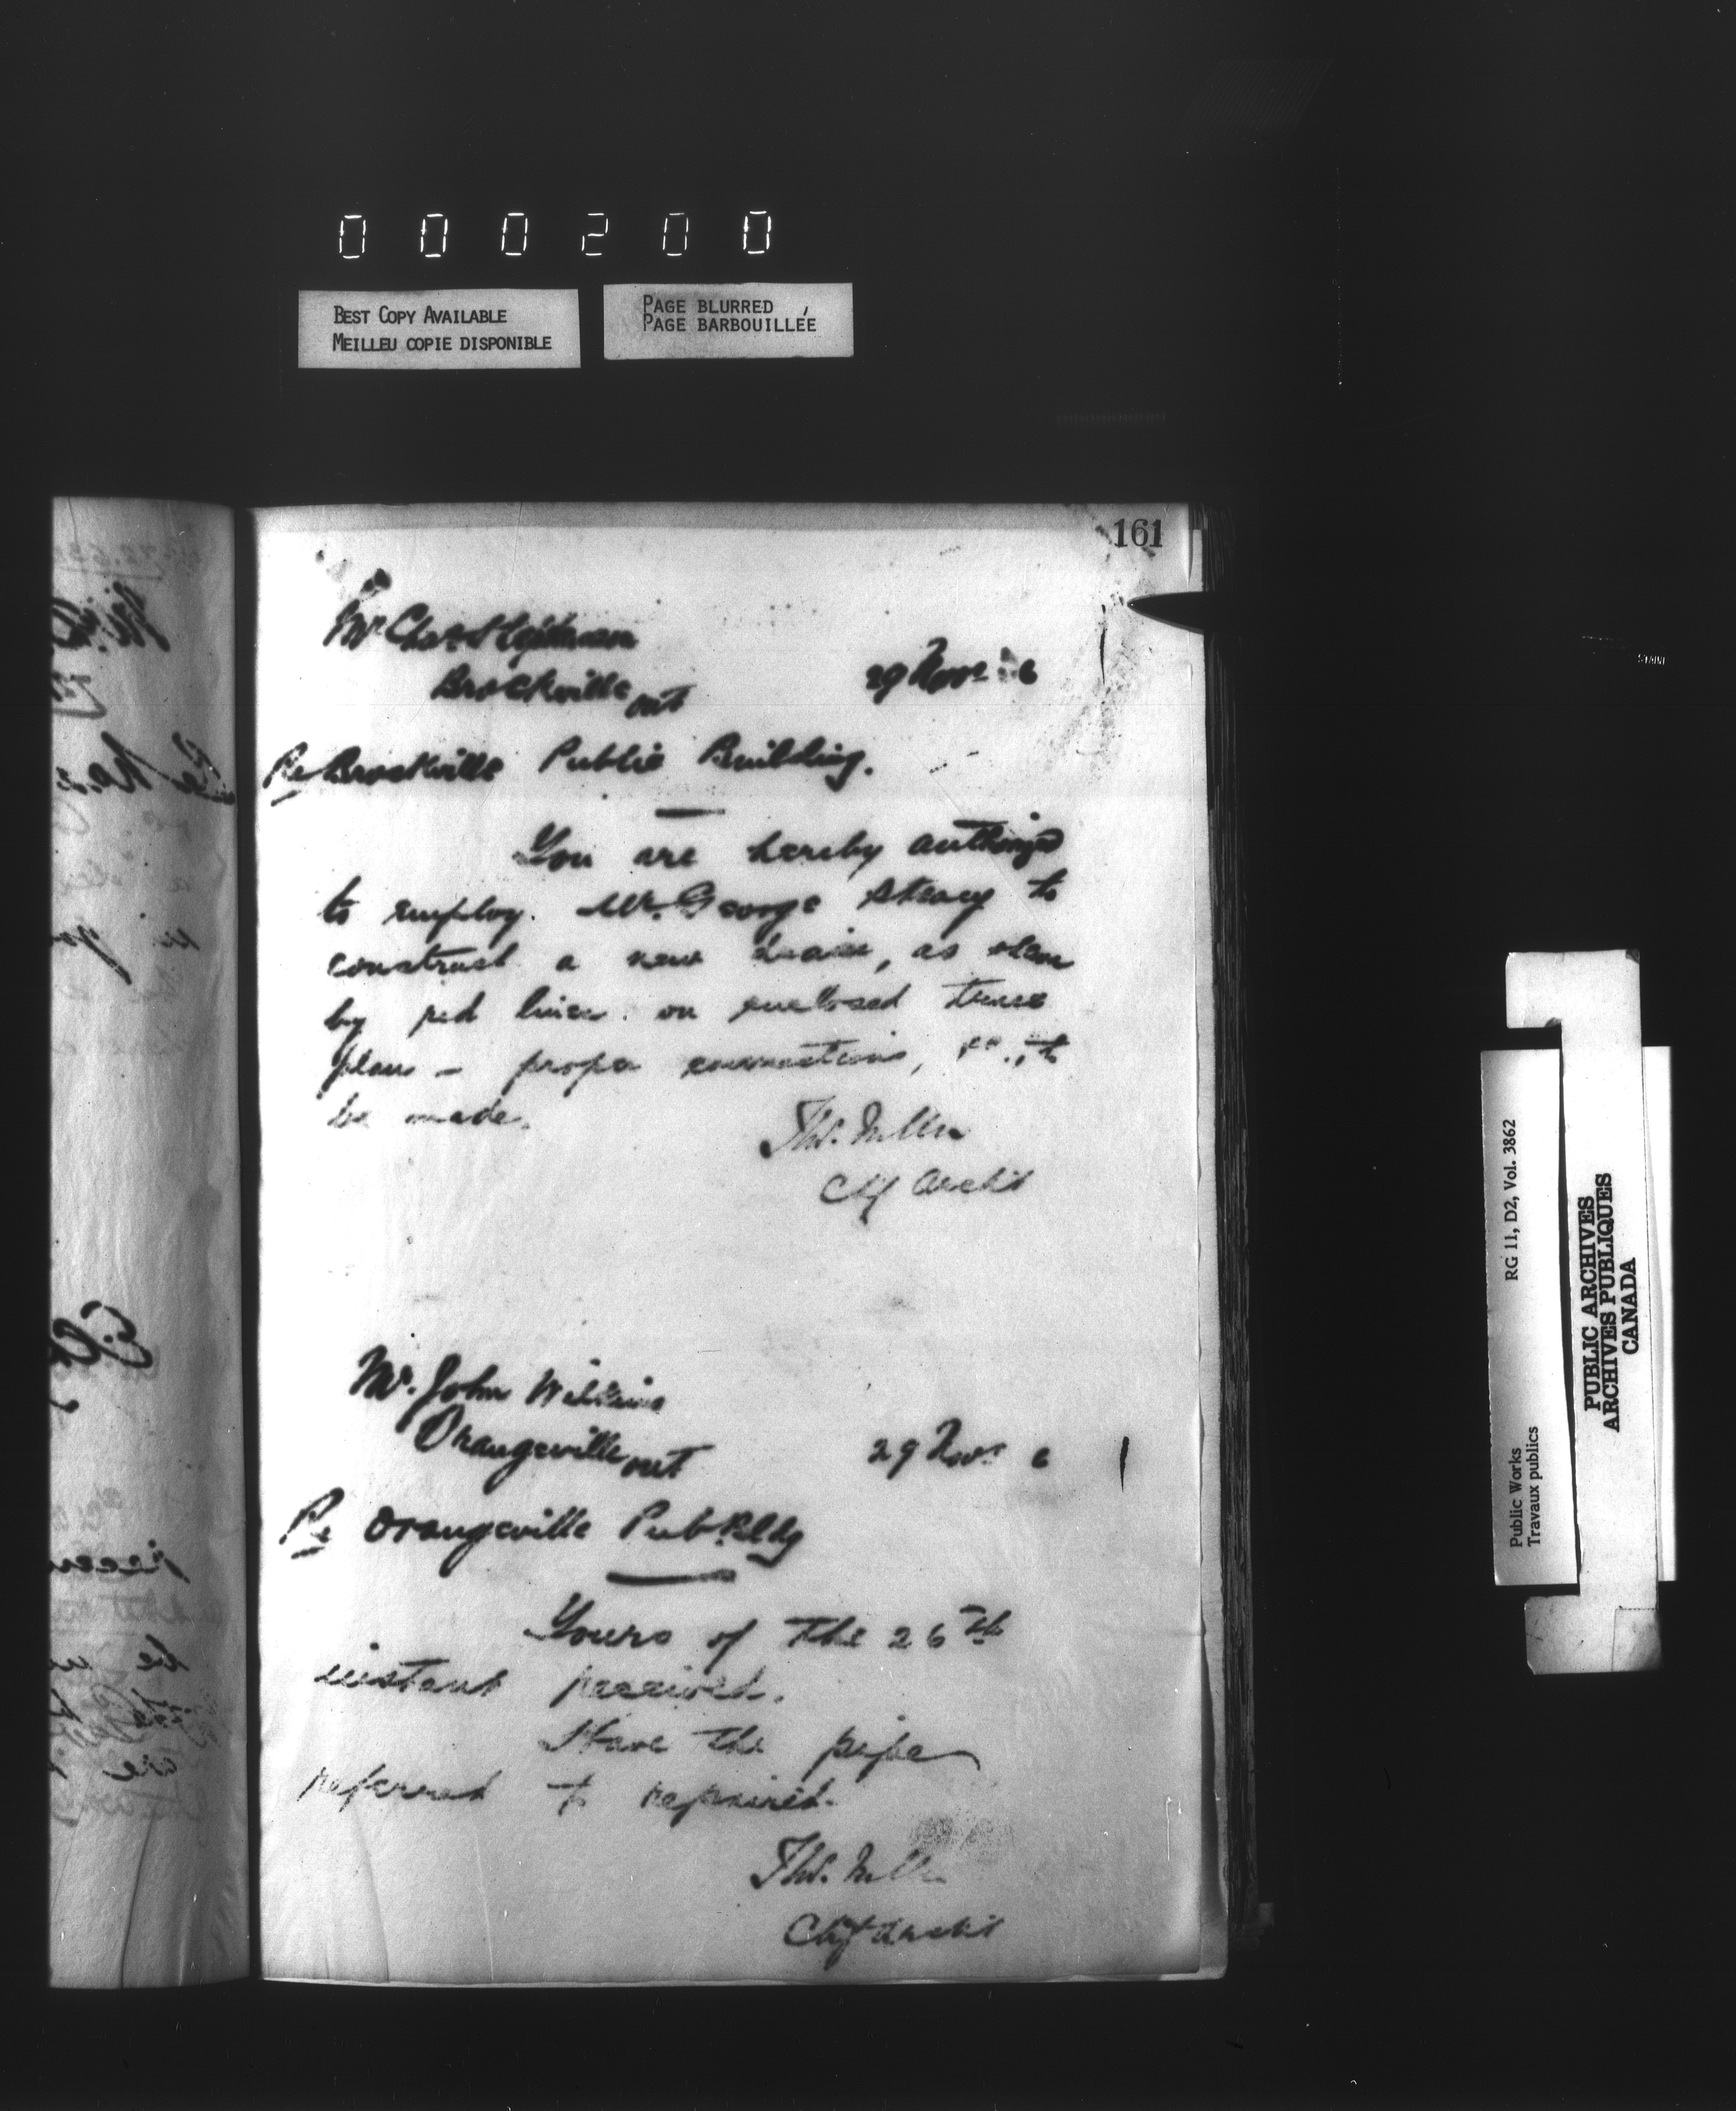 000200
BEST COPY AVAILABLE
MEILLEU COPIE DISPONIBLE
PAGE BLURRED
PAGE BARBOUILLÉE
161
Mr Chas
Brockville Ont
29 Novr 6
Re Brockville Public Building.
You are hereby
to employ Mr. George Stracy to
construct a new drain, as
by red lines on enclosed
plan - proper connections, to
be made.
Thos. Fuller
Chf Archt
Mr. John Wilkins
Orangeville Ont
29 Novr 6
Re Orangeville Pub. Bldg
Yours of the 26th
instant received.
Have the pipe
referred to repaired.
Thos. Fuller
Chf Archt
RG 11, D2, Vol. 3862
Public Works
Travaux publics
PUBLIC ARCHIVES
ARCHIVES PUBLIQUES
CANADA